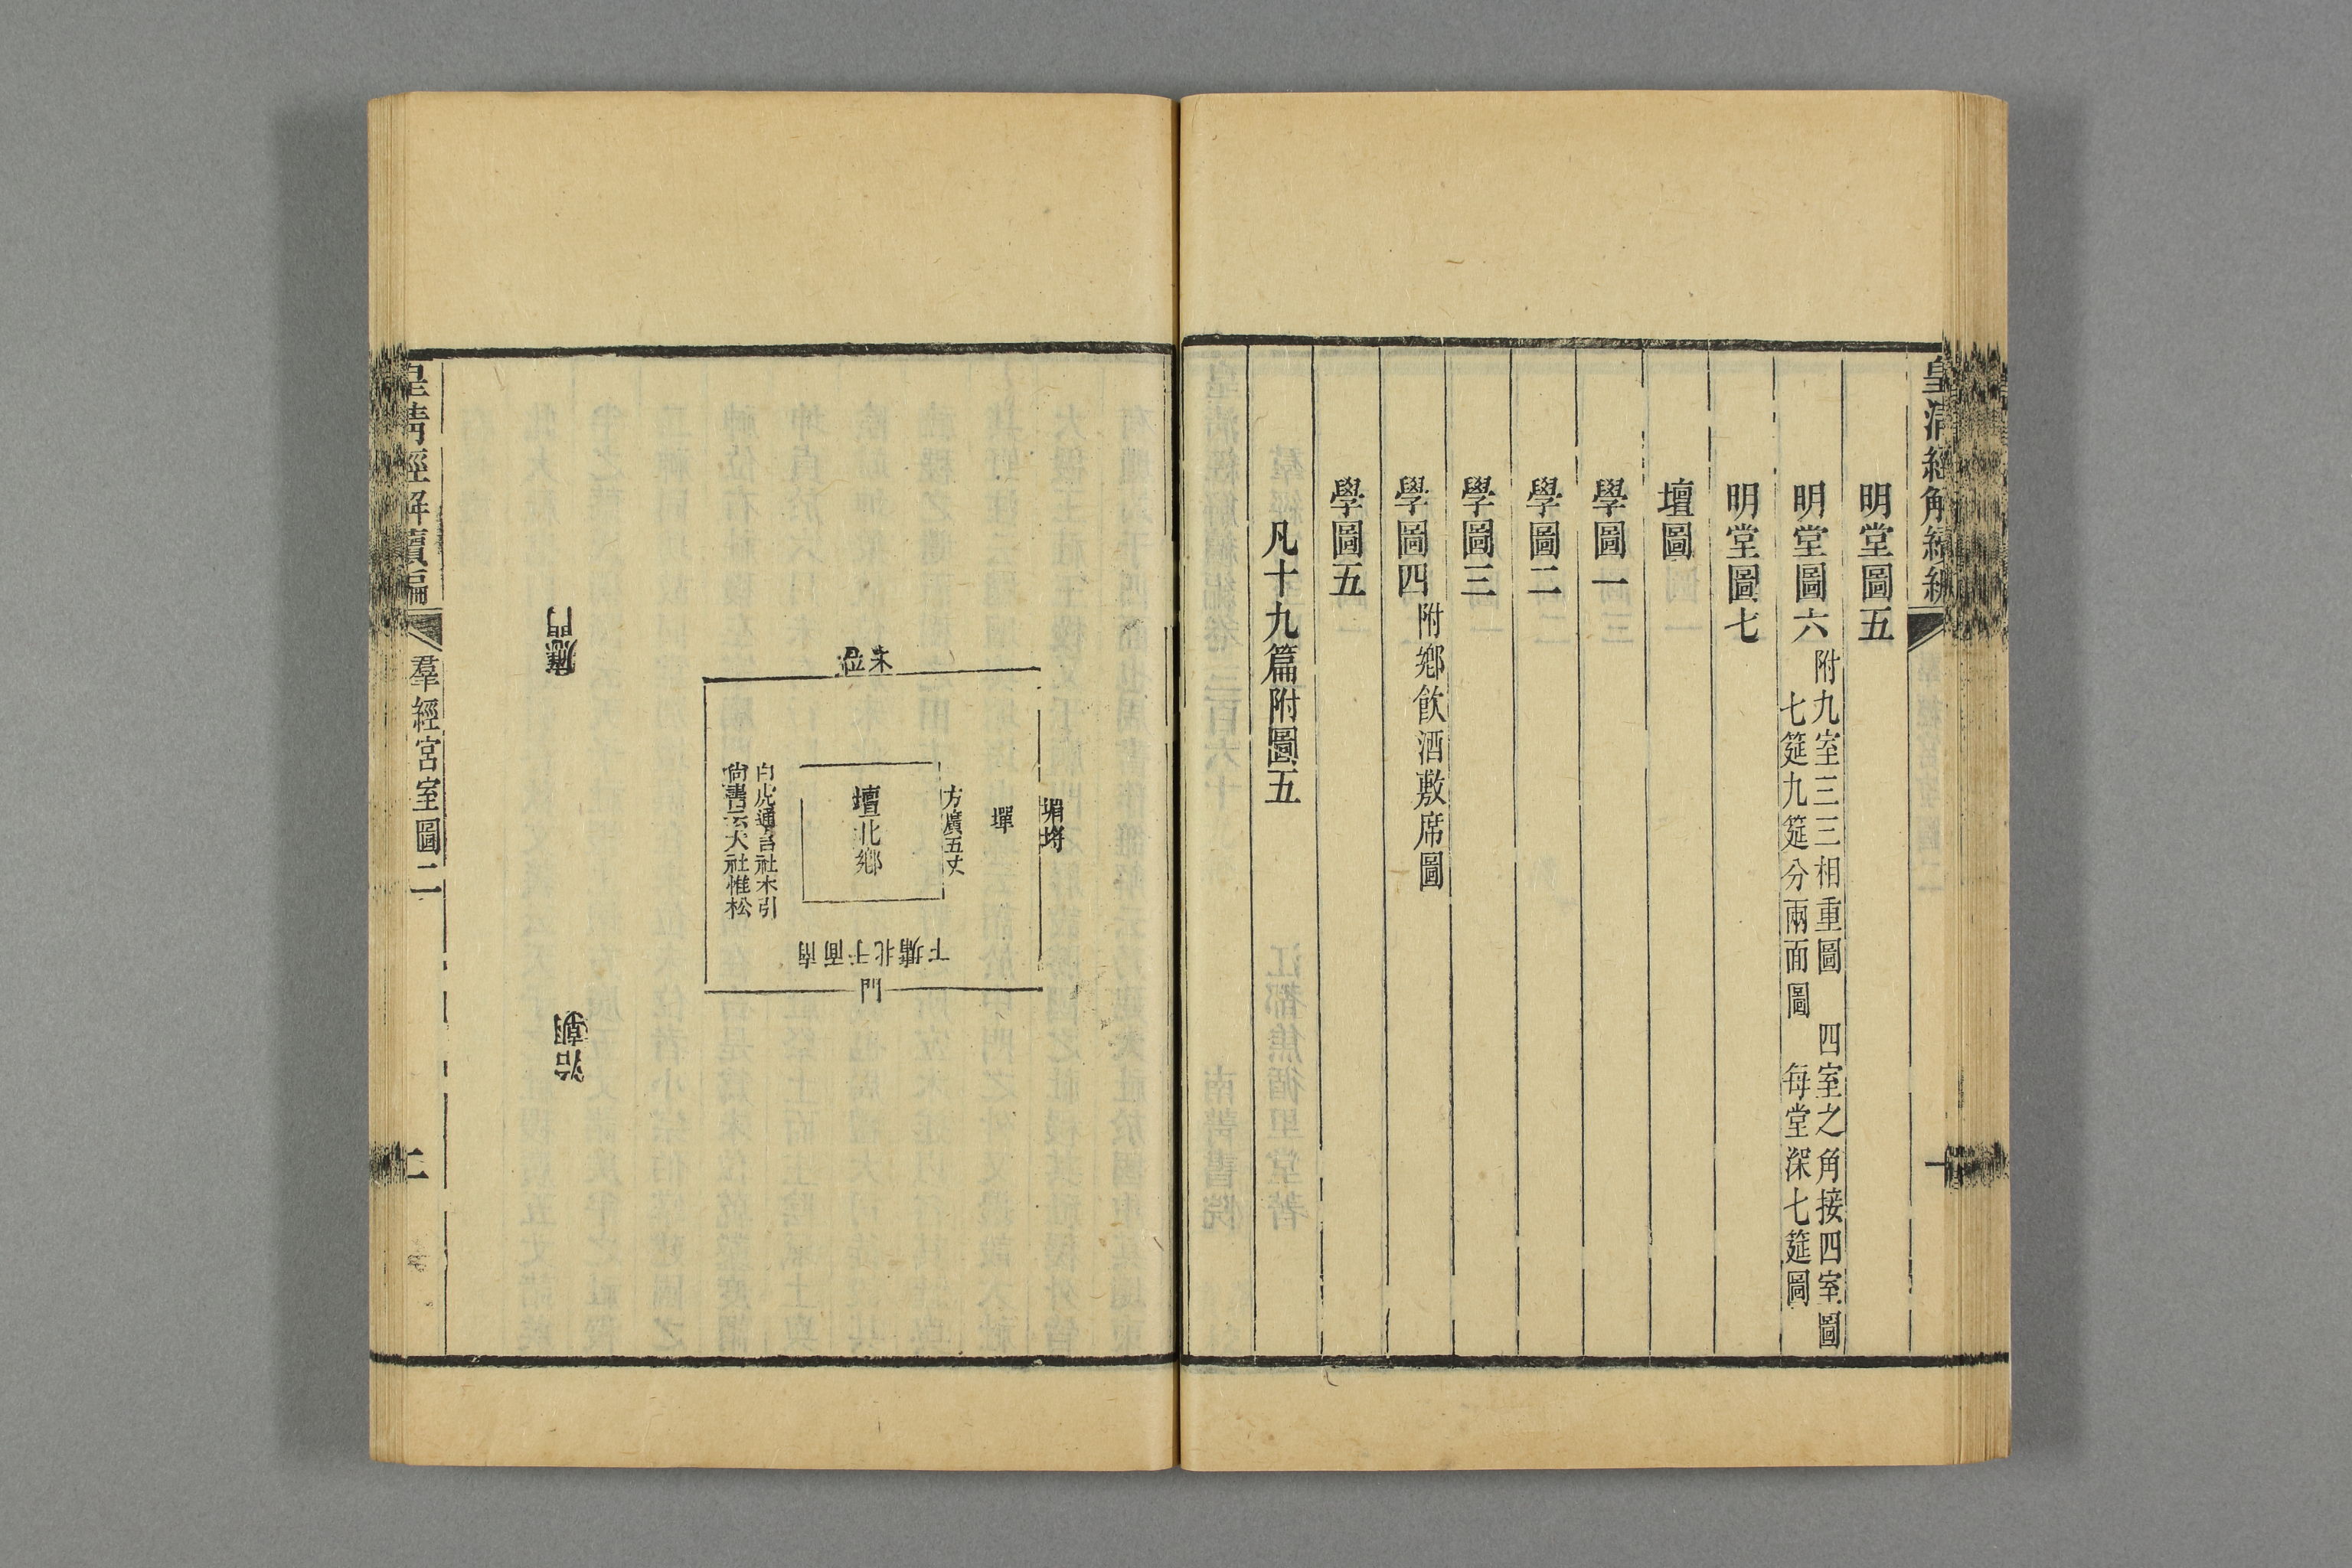 皇清經解續編
明堂圖五
明堂圖六
附九室三三相重圖　四室之角接四室圖
七筵九筵分兩面圖　每堂深七筵圖
明堂圖七
壇圖
學圖一
學圖二
學圖三
學圖四附鄉飲酒敷席圖
學圖五
凡十九篇附圖五
一
壝埒
墠
方廣五丈
未位
壇北鄉
下墉北于面南
門
白虎通言社木引
尚書云大社惟松
應門
治朝
皇清經解續編
羣經宮室圖二
二